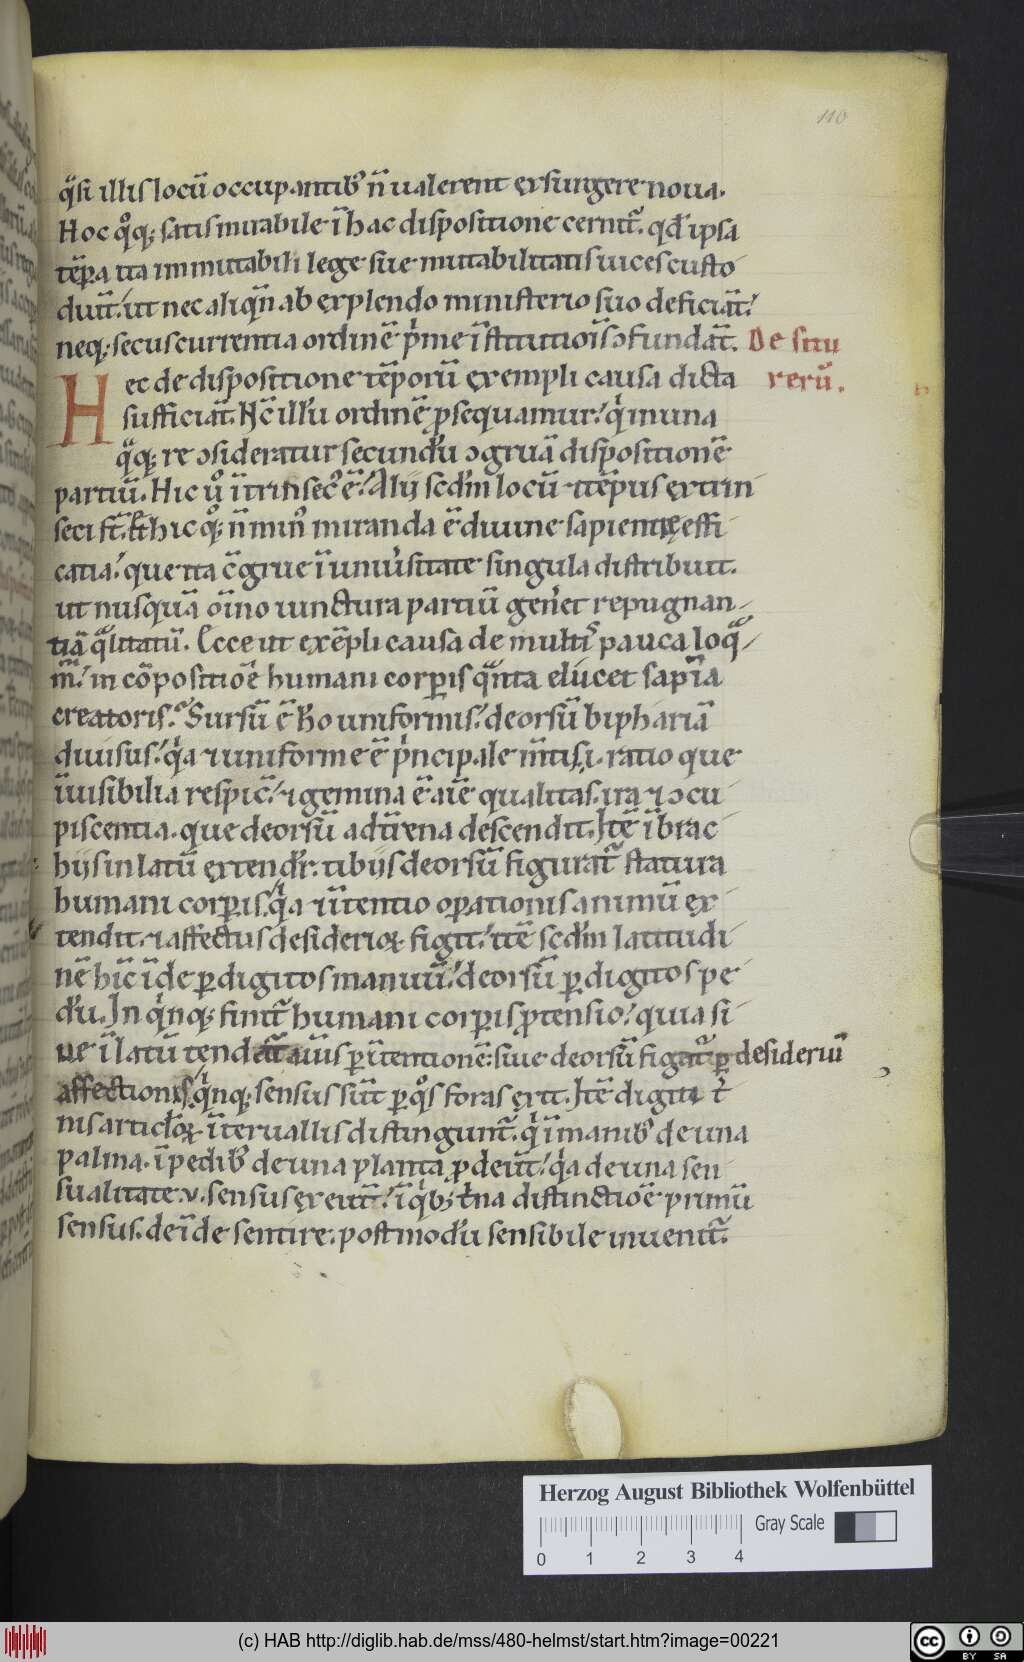 110
qͣsi illis locū occupantibꝰ n̄ ualerent exsurgere noua.
Hoc qͦqꝫ satis mirabile ī hac dispositione cernit᷑. qd̓ ipsa
tēꝑa ita immutabili lege sue mutabilitatis uices custo
diūt. ut nec aliqn̄ ab explendo ministerio suo deficiāt.
neqꝫ secus currentia ordinē pͥme īstitutiōis ↄfundāt. De situ
rerū.
Hec de dispositione tēporū exempli causa dicta
sufficiāt. Nc̄ illū ordinē ꝓsequamur. qͥ in una
qͣqꝫ re ↄsideratur secundū ↄgruā dispositionē
partiū. Hic ūͦ īt̓insecꝰ ē. Alij scd̓m locū ⁊ tēpus extrin
seci st̄. Et hic qͦqꝫ n̄ minꝰ miranda ē diuine sapientie effi
catia. que ita cōgrue ī uniu̓sitate singula distribuit.
ut nusquā oīno iunctura partiū gen̓et repugnan
tiā qͣlitatū. Ecce ut exēpli causa de multis pauca loqͣ
m̄. in cōpositiōe humani corꝑis qͣnta elucet sapīa
creatoris. Sursū ē hō uniformis. deorsū biphariā
diuisus. qͥa ⁊ uniforme ē pͥncipale m̄tis .i. ratio que
īuisibilia respic̄. ⁊ gemina ē aīe qualitas. ira ⁊ ↄcu
piscentia. que deorsū ad t̓rena descendit. Itē ī brac
hijs in latū extendit᷑. tibijs deorsū figurat᷑ statura
humani corꝑis. qͥa ⁊ ītentio oꝑationis animū ex
tendit. ⁊ affectus desiderioꝝ figit. itē scd̓m latitudi
nē hīc īde ꝑ digitos manuū. deorsū ꝑ digitos pe
dū. In qͥnqꝫ finit᷑ humani corꝑis ꝓtensio. quia si
ue ī latū tendat᷑ aīus ꝑ ītentionē. siue deorsū figat᷑ ꝑ desideriū
affectionis. qͥnqꝫ sensus sūt ꝑ qͦs foras exit. Itē digiti t̓
nis articl̓oꝝ īteruallis distingunt᷑. qͥ ī manibꝰ de una
palma. ī pedibꝰ de una planta ꝓdeūt. qͥa de una sen
sualitate .v. sensus exeūt. ī qͥbꝫ t̓na distinctiōe primū
sensus. deīde sentire. postmodū sensibile inuenit᷑.
Herzog August Bibliothek Wolfenbüttel
Gray Scale
0 1 2 3 4
(c) HAB http://diglib.hab.de/mss/480-helmst/start.htm?image=00221
cc BY SA